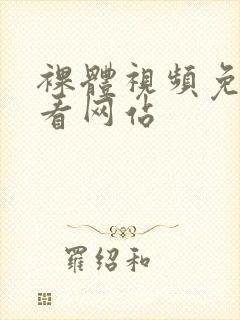 裸體視頻免
看网站
羅绍和